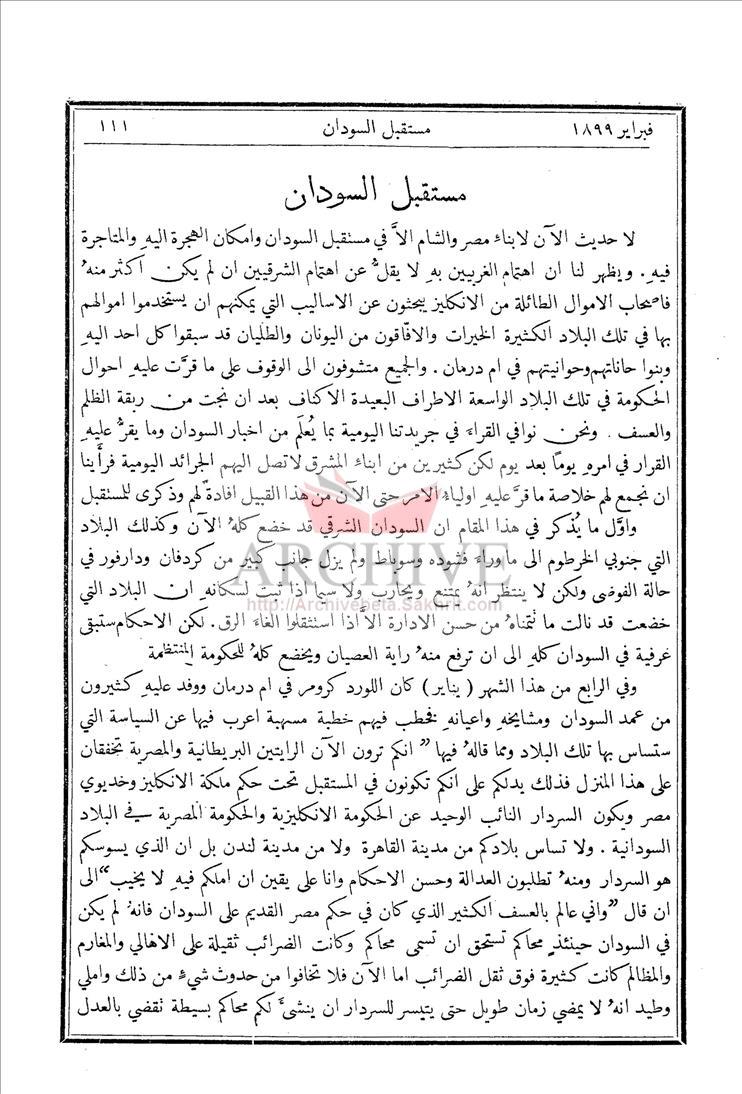 فبراير ١٨٩٩ مستقبل السودان ١١١
مستقبل السودان
لا حديث الآن لابناء مصر والشام الاَّ في مستقبل السودان وامكان الهجرة اليهِ والمتاجرة
فيهِ. ويظهر لنا ان اهتمام الغربيين بهِ لا يقلُّ عن اهتمام الشرقيين ان لم يكن اكثر منهُ
فاصحاب الاموال الطائلة من الانكليز يبحثون عن الاساليب التي يمكنهم ان يستخدموا اموالهم
بها في تلك البلاد الكثيرة الخيرات والافّاقون من اليونان والطليان قد سبقوا كل احد اليهِ
وبنوا حاناتهم وحوانيتهم في ام درمان. والجميع متشوفون الى الوقوف على ما قرَّت عليهِ احوال
الحكومة في تلك البلاد الواسعة الاطراف البعيدة الاكناف بعد ان نجت من ربقة الظلم
والعسف. ونحن نوافي القراء في جريدتنا اليومية بما يُعلَم من اخبار السودان وما يقرُّ عليهِ
القرار في امرهِ يوماً بعد يوم لكن كثيرين من ابناء المشرق لا تصل اليهم الجرائد اليومية فرأينا
ان نجمع لهم خلاصة ما قرَّ عليهِ اولياء الامر حتى الآن من هذا القبيل افادةً لهم وذكرى للمستقبل
واوَّل ما يُذكر في هذا المقام ان السودان الشرقي قد خضع كلهُ الآن وكذلك البلاد
التي جنوبي الخرطوم الى ما وراء فشوده وسوباط ولم يزل جانب كبير من كردفان ودارفور في
حالة الفوضى ولكن لا ينتظر انهُ يمتنع ويحارب ولا سيما اذا ثبت لسكانهِ ان البلاد التي
خضعت قد نالت ما تتمناهُ من حسن الادارة الاَّ اذا استثقلوا الغاء الرق. لكن الاحكام ستبقى
عرفية في السودان كلهِ الى ان ترفع منهُ راية العصيان ويخضع كلهُ للحكومة المنتظمة
وفي الرابع من هذا الشهر (يناير) كان اللورد كرومر في ام درمان ووفد عليهِ كثيرون
من عمد السودان ومشايخهِ واعيانهِ فخطب فيهم خطبة مسهبة اعرب فيها عن السياسة التي
ستساس بها تلك البلاد ومما قالهُ فيها "انكم ترون الآن الرايتين البريطانية والمصرية تخفقان
على هذا المنزل فذلك يدلكم على انكم تكونون في المستقبل تحت حكم ملكة الانكليز وخديوي
مصر ويكون السردار النائب الوحيد عن الحكومة الانكليزية والحكومة المصرية في البلاد
السودانية. ولا تساس بلادكم من مدينة القاهرة ولا من مدينة لندن بل ان الذي يسوسكم
هو السردار ومنهُ تطلبون العدالة وحسن الاحكام وانا على يقين ان املكم فيهِ لا يخيب" الى
ان قال "واني عالم بالعسف الكثير الذي كان في حكم مصر القديم على السودان فانهُ لم يكن
في السودان حينئذٍ محاكم تستحق ان تسمى محاكم وكانت الضرائب ثقيلة على الاهالي والمغارم
والمظالم كانت كثيرة فوق ثقل الضرائب اما الآن فلا تخافوا من حدوث شيءٍ من ذلك واملي
وطيد انهُ لا يمضي زمان طويل حتى يتيسر للسردار ان ينشئَ لكم محاكم بسيطة تقضي بالعدل
ARCHIVE
http://Archivebeta.Sakhrit.com